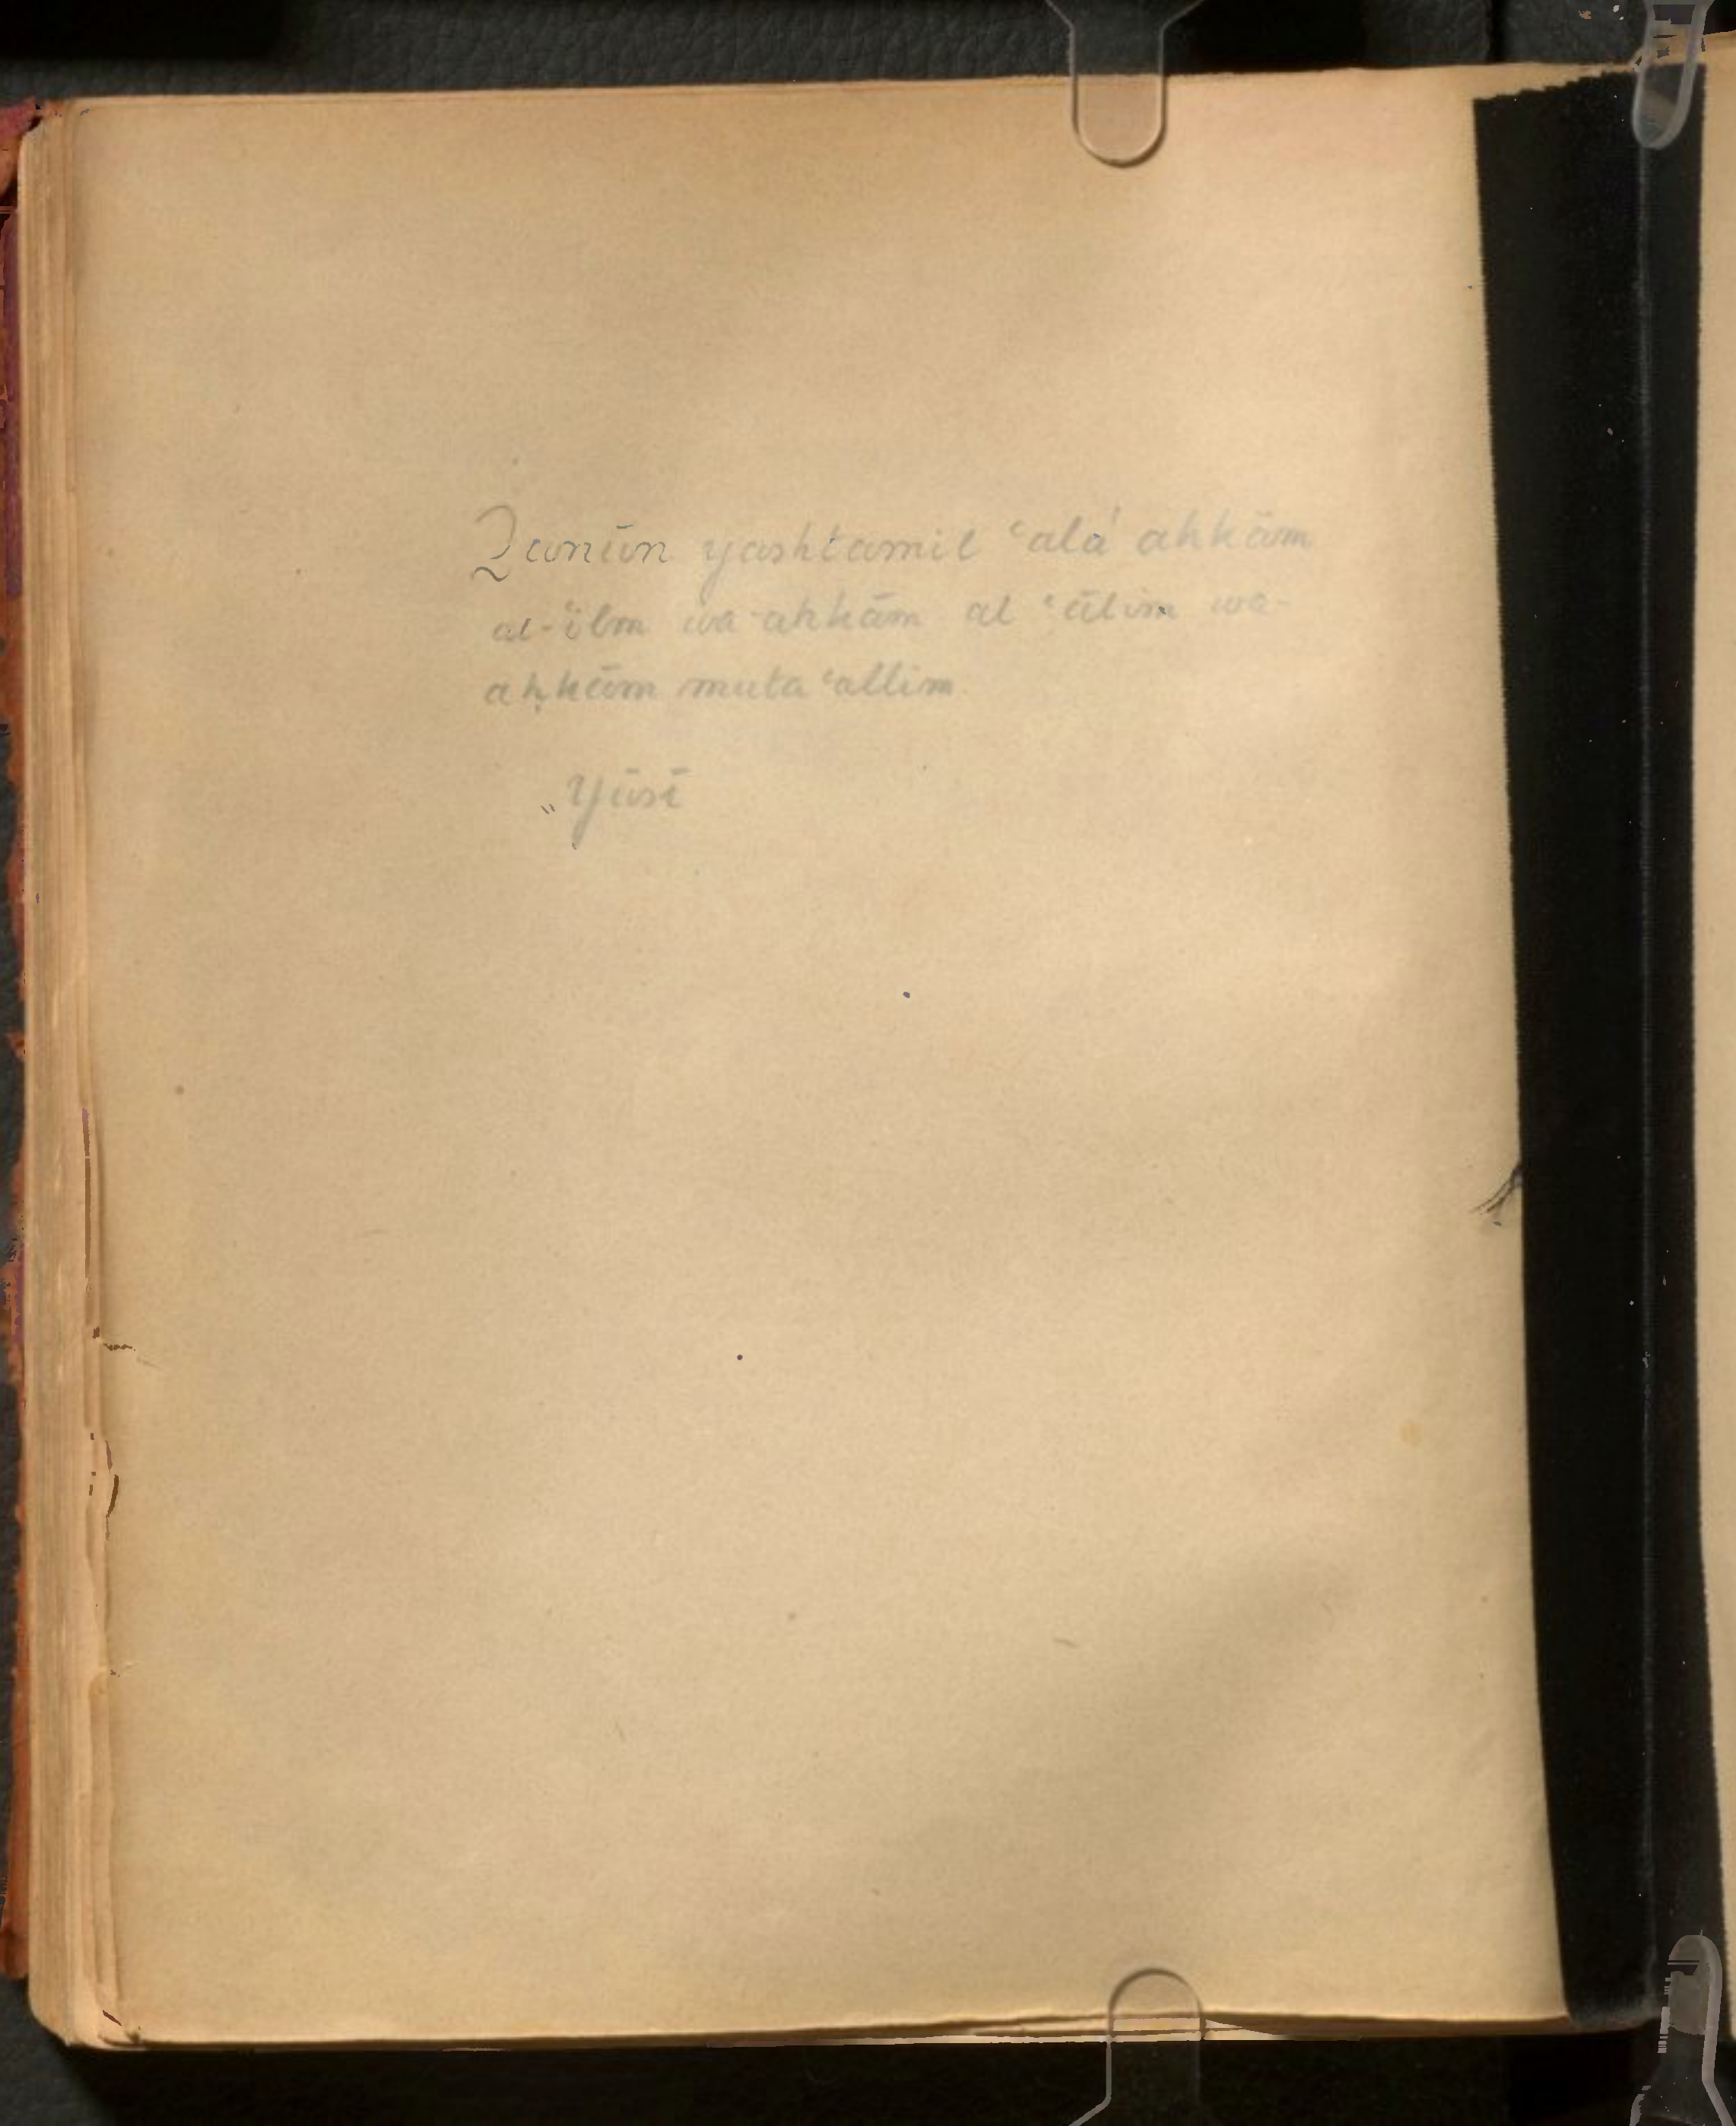 Qanūn yashtamil ʿalá ahkām
al-ʿilm wa-ahkām al ʿālim wa-
aḥkām mutaʿallim
Yūsī